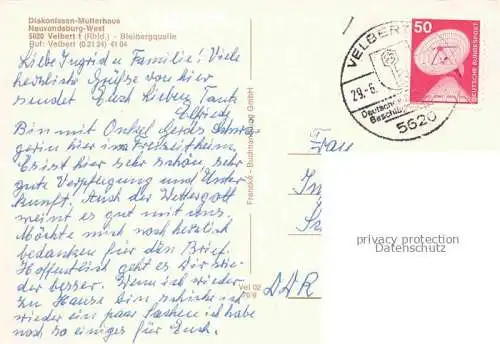 Diakonissen-Mutterhaus
Neuvandsburg-West
5620 Velbert 1 (Rhld.) - Bleibergquelle
Ruf: Velbert (0 21 24) 41 04
Liebe Ingrid u Familie! Viele
herzliche Grüße von hier
sendet Euch Lieben Tante
Elfriede
Bin mit Onkel
gerin hier im Freizeitheim,
Es ist hier sehr schön, sehr
gute Verpflegung und Unter
kunft. Auch der Wettergott
meint es gut mit uns.
Möchte mich noch herzlich
bedanken für den Brief.
Hoffentlich geht es Dir wie-
der besser. Wenn ich wieder
zu Hause bin schicke ich
wieder ein paar Sachen ich habe
noch so einiges für Euch.
Francke-Buchhandlung GmbH
Vel 02
VELBERT
29.-6.
Deutsches
5620
50
DEUTSCHE BUNDESPOST
Frau
privacy protection
watermark
DDR